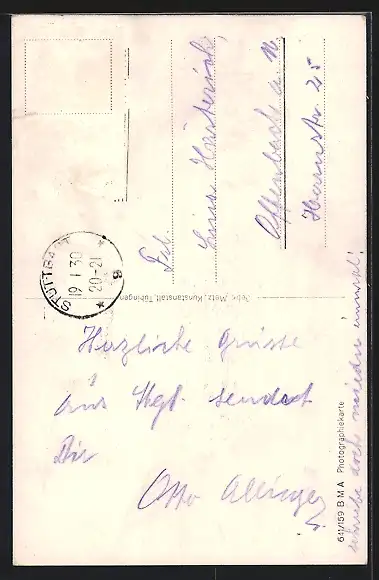 STUTTGART
19.1.30
20-21
* 8 *
Frl.
Luise
Offenbach a. M.
Herrnstr. 25
Gebr. Metz, Kunstanstalt, Tübingen
Herzliche Grüsse
aus Stgt. sendet
Dir
Otto
schreibe doch wieder einmal!
641/159 B M A Photographiekarte